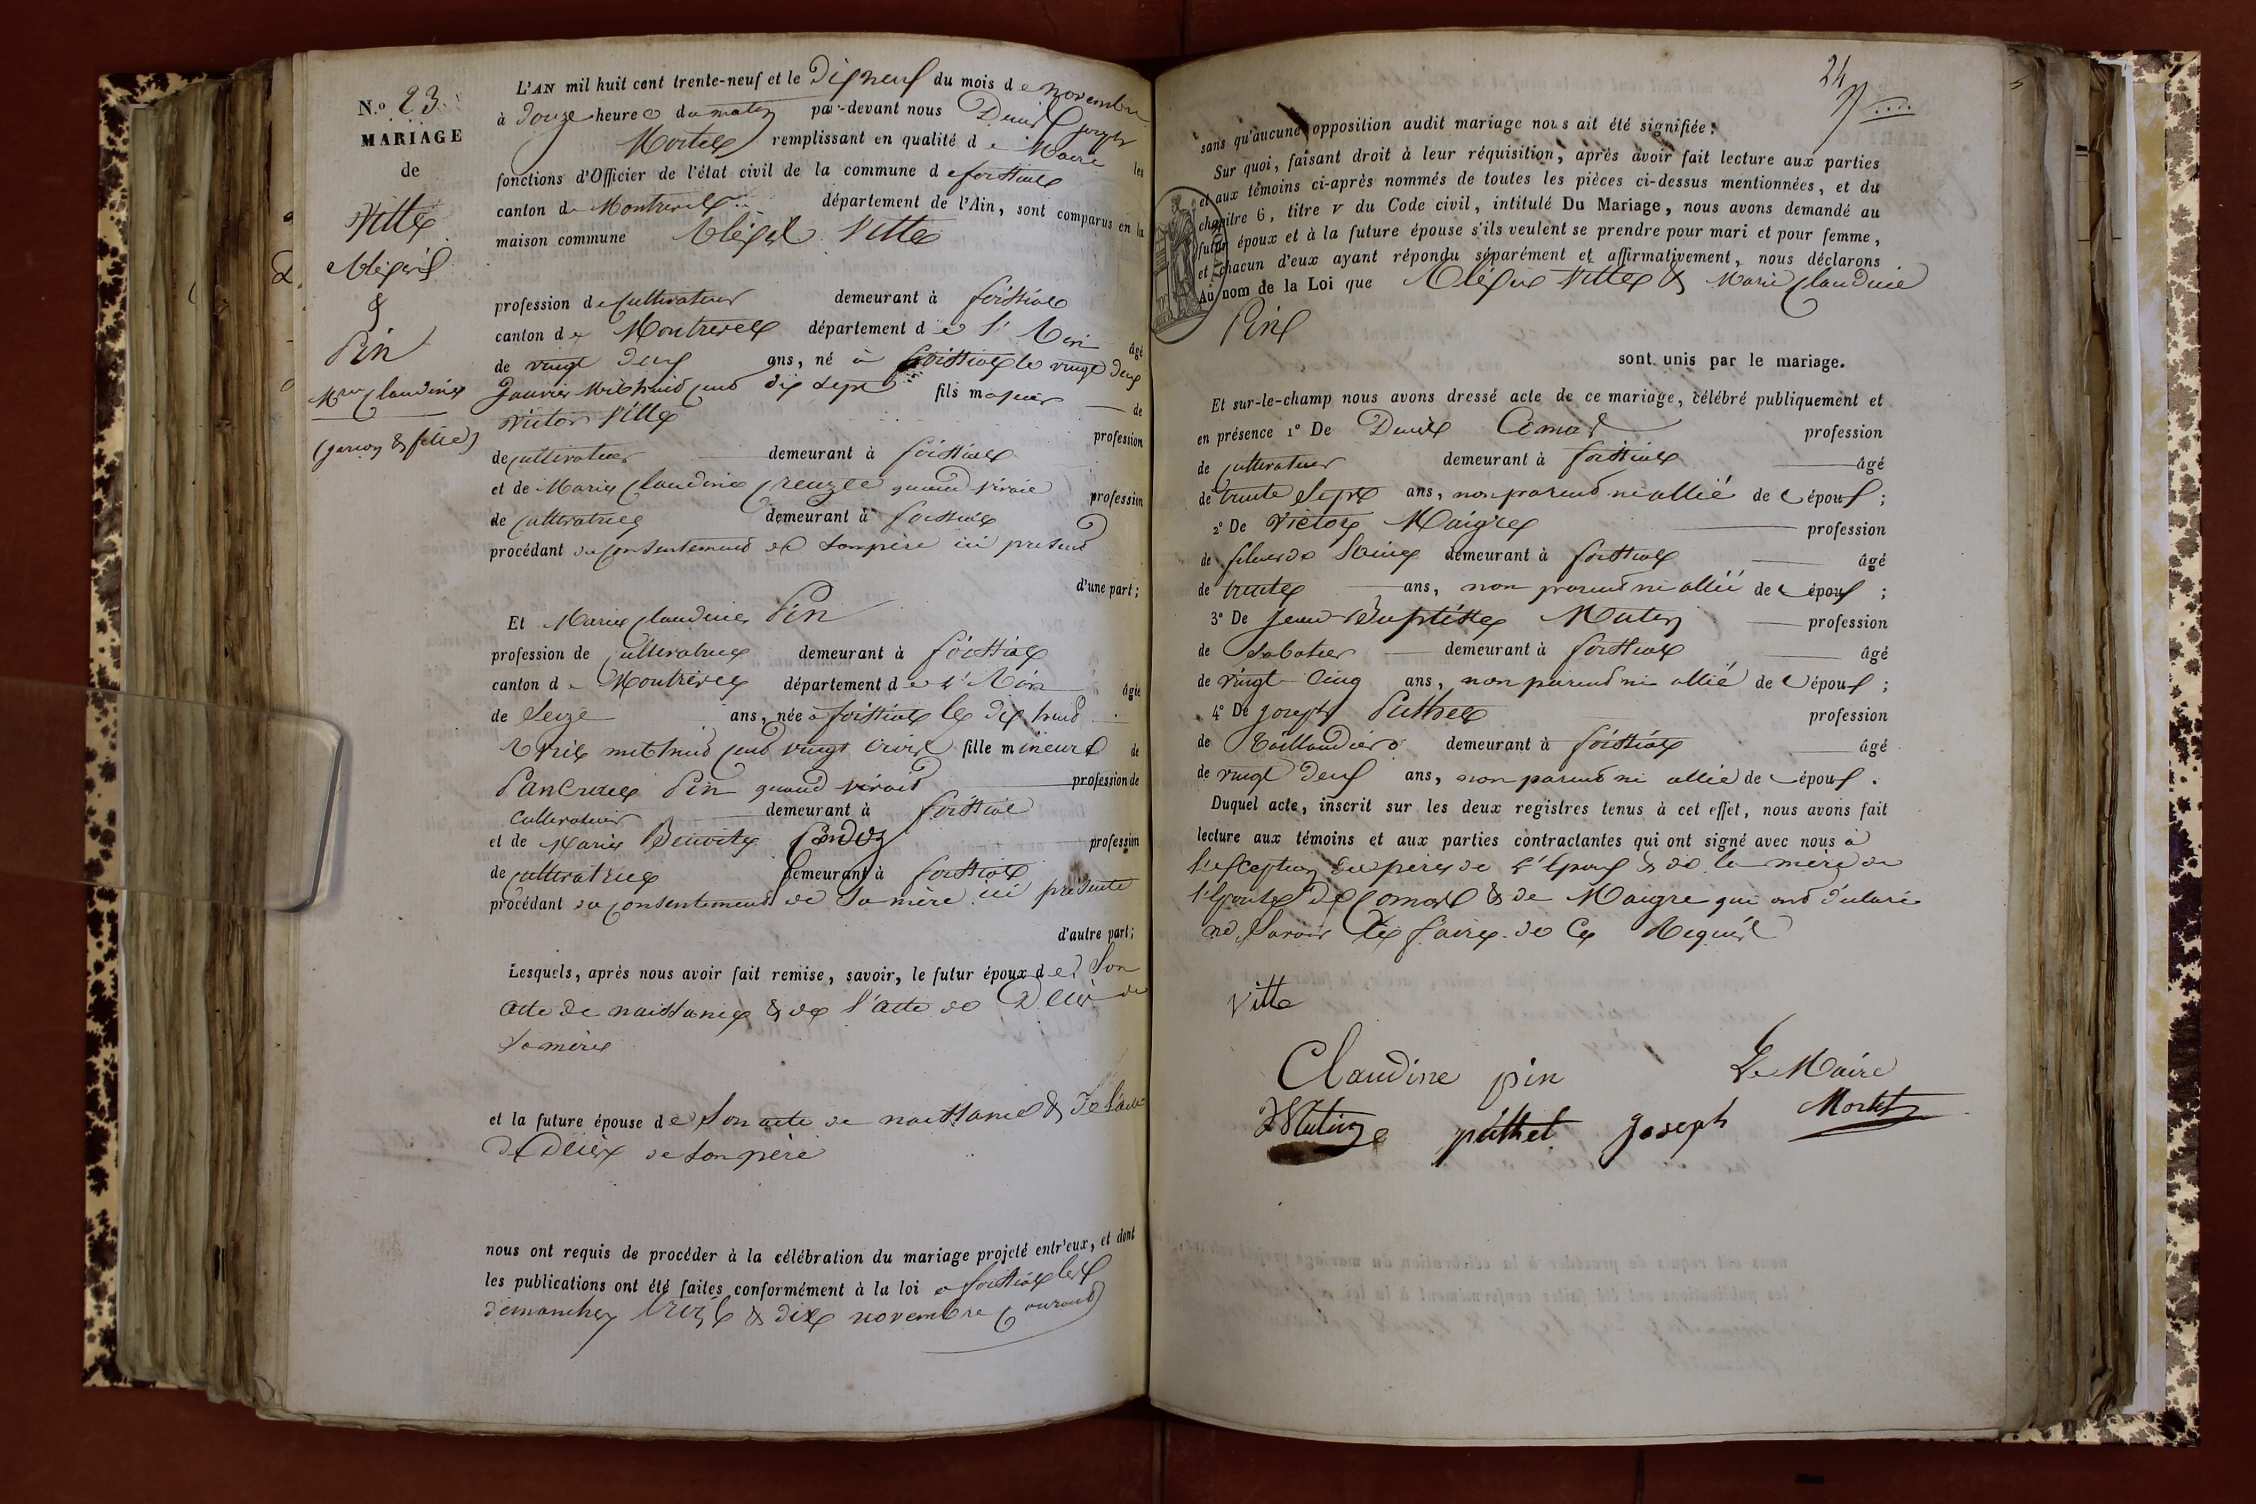 N.º 23
MARIAGE
de
Vitte
Alexis
&
Pin
Mie Claudine
(garçon & fille)
L'AN mil huit cent trente-neuf et le dix neuf du mois de novembre
à douze heures du matin par-devant nous Denis Joseph
Mortel remplissant en qualité de Maire les
fonctions d'Officier de l'état civil de la commune de foissiat
canton de Montrevel département de l'Ain, sont comparus en la
maison commune Alexis Vitte
profession de Cultivateur demeurant à foissiat
canton de Montrevel département de l'Ain âgé
de vingt deux ans, né à foissiat le vingt deux
Janvier mil huit cent dix sept fils majeur de
Victor Vitte profession
de cultivateur demeurant à foissiat
et de Marie Claudine Creuzee quand vivait profession
de cultivatrice demeurant à foissiat
procédant du consentement de son père ici présent
d'une part;
Et Marie Claudine Pin
profession de cultivatrice demeurant à foissiat
canton de Montrevel département de l'Ain âgée
de Seize ans, née à foissiat le dix huit
Avril mil huit cent vingt trois fille mineure de
Pancrace Pin quand vivait profession de
Cultivateur demeurant à foissiat
et de Marie Benoite profession
de cultivatrice demeurant à foissiat
procédant du consentement de sa mère ici présente
d'autre part;
Lesquels, après nous avoir fait remise, savoir, le futur époux de Son
acte de naissance & de l'acte de Décès de
sa mère
et la future épouse de Son acte de naissance & de l'acte
de Décès de son père
nous ont requis de procéder à la célébration du mariage projeté entr'eux, et dont
les publications ont été faites conformément à la loi à foissiat les
dimanches trois & dix novembre courant
24
sans qu'aucune opposition audit mariage nous ait été signifiée;
Sur quoi, faisant droit à leur réquisition, après avoir fait lecture aux parties
et aux témoins ci-après nommés de toutes les pièces ci-dessus mentionnées, et du
chapitre 6, titre V du Code civil, intitulé Du Mariage, nous avons demandé au
futur époux et à la future épouse s'ils veulent se prendre pour mari et pour femme,
et chacun d'eux ayant répondu séparément et affirmativement, nous déclarons
Au nom de la Loi que Alexis Vitte & Marie Claudine
Pin
sont unis par le mariage.
Et sur-le-champ nous avons dressé acte de ce mariage, célébré publiquement et
en présence 1º De Denis Comas profession
de cultivateur demeurant à foissiat âgé
de trente Sept ans, non parent ni allié des époux;
2º De Victor Maigre profession
de demeurant à foissiat âgé
de trente ans, non parent ni allié des époux;
3º De Jean Baptiste Mutin profession
de Sabotier demeurant à foissiat âgé
de vingt cinq ans, non parent ni allié des époux;
4º De Joseph Puthet profession
de Taillandier demeurant à foissiat âgé
de vingt deux ans, non parent ni allié des époux.
Duquel acte, inscrit sur les deux registres tenus à cet effet, nous avons fait
lecture aux témoins et aux parties contractantes qui ont signé avec nous à
l'exception du père de l'époux & de la mère de
l'épouse de Comas & de Maigre qui ont déclaré
ne savoir le faire de ce Requis
Vitte
Claudine pin Le Maire
Mutin puthet joseph Mortel